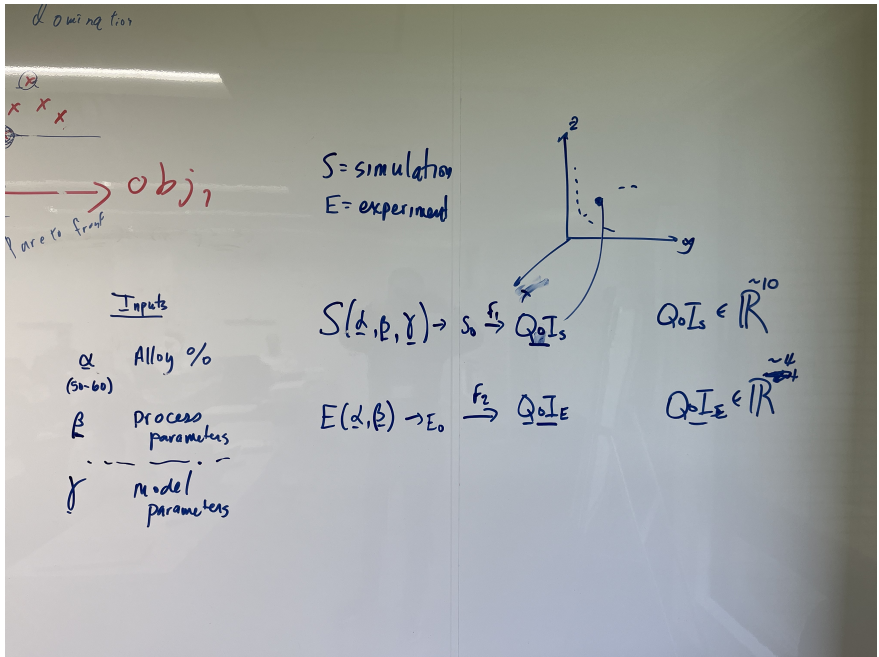 domination
x
x x x
obj1
Pareto front
S = simulation
E = experiment
z
y
x
Inputs
α Alloy %
(50-60)
β process
parameters
γ model
parameters
S(α, β, γ) → S₀ →F₁ QoIₛ QoIₛ ∈ ℝ~10
E(α, β) → E₀ →F₂ QoI_E QoI_E ∈ ℝ~4